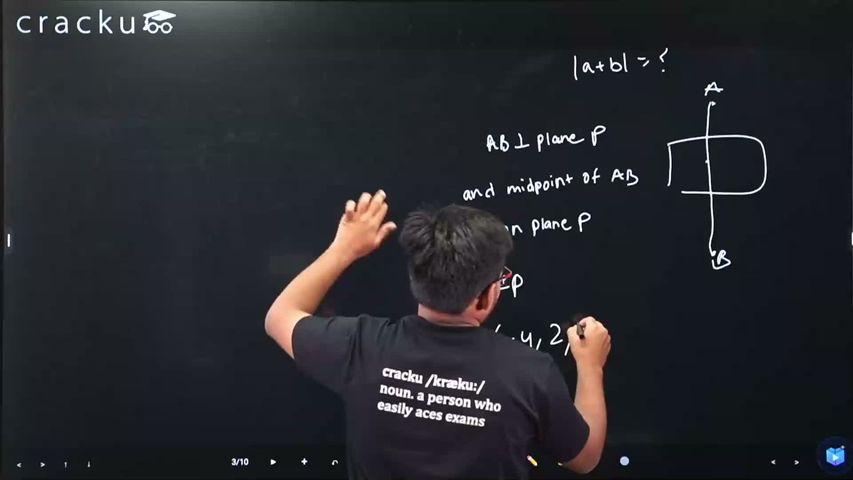 cracku
|a+b| = ?
A
AB ⊥ plane P
and midpoint of AB
plane P
B
P
4, 2,
cracku /kræku:/
noun. a person who
easily aces exams
3/10